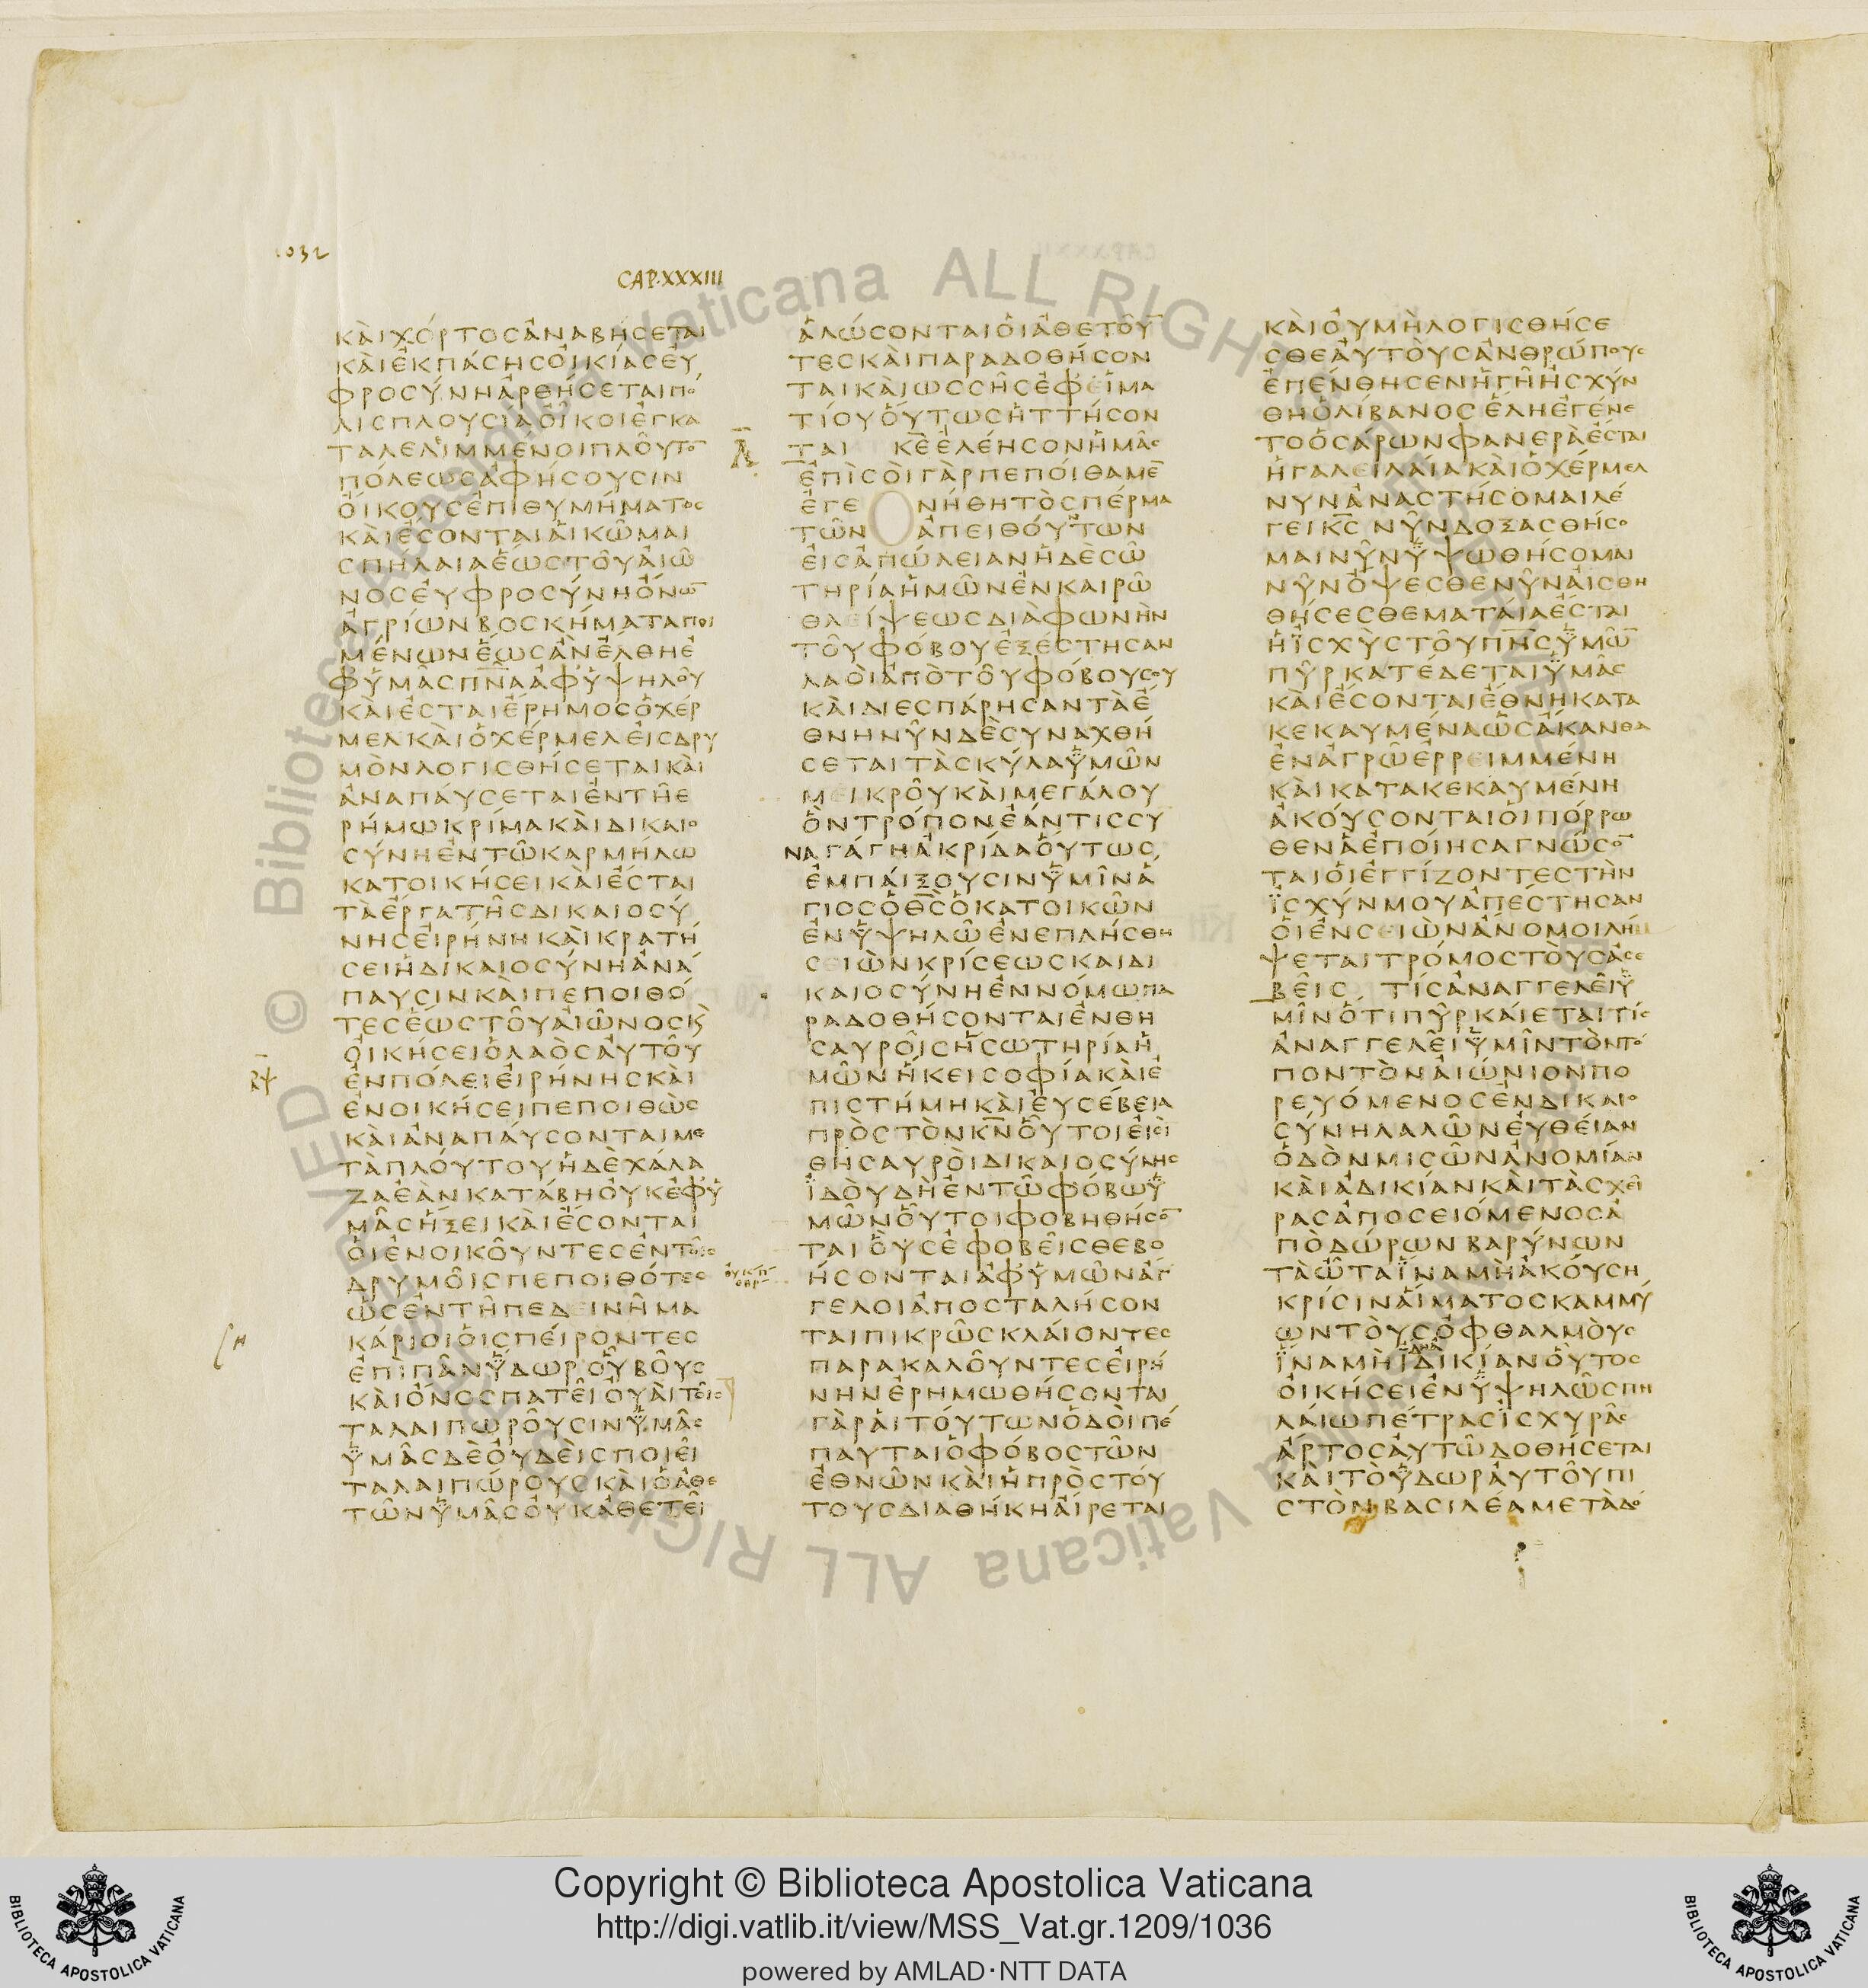 1032
CAP. XXXIII
ΚΑΙΧΟΡΤΟCΑΝΑΒΗCΕΤΑΙ
ΚΑΙΕΚΠΑCΗCΟΙΚΙΑCΕΥ
ΦΡΟCΥΝΗΑΡΘΗCΕΤΑΙΠΟ
ΛΙCΠΛΟΥCΙΑΟΙΚΟΙΕΓΚΑ
ΤΑΛΕΛΙΜΜΕΝΟΙΠΛΟΥΤΟ̅
ΠΟΛΕΩCΑΦΗCΟΥCΙΝ
ΟΙΚΟΥCΕΠΙΘΥΜΗΜΑΤΟC
ΚΑΙΕCΟΝΤΑΙΑΙΚΩΜΑΙ
CΠΗΛΑΙΑΕΩCΤΟΥΑΙΩ̅
ΝΟCΕΥΦΡΟCΥΝΗΟΝΩ̅
ΑΓΡΙΩΝΒΟCΚΗΜΑΤΑΠΟΙ
ΜΕΝΩΝΕΩCΑΝΕΛΘΗΕ
ΦΥΜΑCΠΝ̅ΑΑΦΥΨΗΛΟΥ
ΚΑΙΕCΤΑΙΕΡΗΜΟCΟΧΕΡ
ΜΕΛΚΑΙΟΧΕΡΜΕΛΕΙCΔΡΥ
ΜΟΝΛΟΓΙCΘΗCΕΤΑΙΚΑΙ
ΑΝΑΠΑΥCΕΤΑΙΕΝΤΗΕ
ΡΗΜΩΚΡΙΜΑΚΑΙΔΙΚΑΙΟ
CΥΝΗΕΝΤΩΚΑΡΜΗΛΩ
ΚΑΤΟΙΚΗCΕΙΚΑΙΕCΤΑΙ
ΤΑΕΡΓΑΤΗCΔΙΚΑΙΟCΥ
ΝΗCΕΙΡΗΝΗΚΑΙΚΡΑΤΗ
CΕΙΗΔΙΚΑΙΟCΥΝΗΑΝΑ
ΠΑΥCΙΝΚΑΙΠΕΠΟΙΘΟ
ΤΕCΕΩCΤΟΥΑΙΩΝΟCΚ
ΟΙΚΗCΕΙΟΛΑΟCΑΥΤΟΥ
ΕΝΠΟΛΕΙΕΙΡΗΝΗCΚΑΙ
ΕΝΟΙΚΗCΕΙΠΕΠΟΙΘΩC
ΚΑΙΑΝΑΠΑΥCΟΝΤΑΙΜΕ
ΤΑΠΛΟΥΤΟΥΗΔΕΧΑΛΑ
ΖΑΕΑΝΚΑΤΑΒΗΟΥΚΕΦΥ
ΜΑCΗΞΕΙΚΑΙΕCΟΝΤΑΙ
ΟΙΕΝΟΙΚΟΥΝΤΕCΕΝΤΟΙC
ΔΡΥΜΟΙCΠΕΠΟΙΘΟΤΕC
ΩCΕΝΤΗΠΕΔΕΙΝΗΜΑ
ΚΑΡΙΟΙΟΙCΠΕΙΡΟΝΤΕC
ΕΠΙΠΑΝΥΔΩΡΟΥΒΟΥC
ΚΑΙΟΝΟCΠΑΤΕΙΟΥΑΙΤΟΙC
ΤΑΛΑΙΠΩΡΟΥCΙΝΥΜΑC
ΥΜΑCΔΕΟΥΔΕΙCΠΟΙΕΙ
ΤΑΛΑΙΠΩΡΟΥCΚΑΙΟΑΘΕ
ΤΩΝΥΜΑCΟΥΚΑΘΕΤΕΙ
ΑΛΩCΟΝΤΑΙΟΙΑΘΕΤΟΥ̅
ΤΕCΚΑΙΠΑΡΑΔΟΘΗCΟΝ
ΤΑΙΚΑΙΩCCΗCΕΦΕΙΜΑ
ΤΙΟΥΟΥΤΩCΗΤΤΗCΟΝ
ΤΑΙ ΚΕ̅ΕΛΕΗCΟΝΗΜΑC
ΕΠΙCΟΙΓΑΡΠΕΠΟΙΘΑΜΕ̅
ΕΓΕ ΝΗΘΗΤΟCΠΕΡΜΑ
ΤΩΝ ΑΠΕΙΘΟΥΝΤΩΝ
ΕΙCΑΠΩΛΕΙΑΝΗΔΕCΩ
ΤΗΡΙΑΗΜΩΝΕΝΚΑΙΡΩ
ΘΛΕΙΨΕΩCΔΙΑΦΩΝΗΝ
ΤΟΥΦΟΒΟΥΕΞΕCΤΗCΑΝ
ΛΑΟΙΑΠΟΤΟΥΦΟΒΟΥCΟΥ
ΚΑΙΔΙΕCΠΑΡΗCΑΝΤΑΕ
ΘΝΗΝΥΝΔΕCΥΝΑΧΘΗ
CΕΤΑΙΤΑCΚΥΛΑΥΜΩΝ
ΜΕΙΚΡΟΥΚΑΙΜΕΓΑΛΟΥ
ΟΝΤΡΟΠΟΝΕΑΝΤΙCCΥ
ΝΑΓΑΓΗΑΚΡΙΔΑΟΥΤΩC
ΕΜΠΑΙΞΟΥCΙΝΥΜΙΝΑ
ΓΙΟCΟΘ̅C̅ΟΚΑΤΟΙΚΩΝ
ΕΝΥΨΗΛΩΕΝΕΠΛΗCΘΗ
CΕΙΩΝΚΡΙCΕΩCΚΑΙΔΙ
ΚΑΙΟCΥΝΗΕΝΝΟΜΩΠΑ
ΡΑΔΟΘΗCΟΝΤΑΙΕΝΘΗ
CΑΥΡΟΙCΗCΩΤΗΡΙΑΗ
ΜΩΝΗΚΕΙCΟΦΙΑΚΑΙΕ
ΠΙCΤΗΜΗΚΑΙΕΥCΕΒΕΙΑ
ΠΡΟCΤΟΝΚ̅Ν̅ΟΥΤΟΙΕΙCΙ
ΘΗCΑΥΡΟΙΔΙΚΑΙΟCΥΝΗC
ΙΔΟΥΔΗΕΝΤΩΦΟΒΩΥ
ΜΩΝΟΥΤΟΙΦΟΒΗΘΗCΟ̅
ΤΑΙΟΥCΕΦΟΒΕΙCΘΕΒΟ
ΗCΟΝΤΑΙΑΦΥΜΩΝΑΓ
ΓΕΛΟΙΑΠΟCΤΑΛΗCΟΝ
ΤΑΙΠΙΚΡΩCΚΛΑΙΟΝΤΕC
ΠΑΡΑΚΑΛΟΥΝΤΕCΕΙΡΗ
ΝΗΝΕΡΗΜΩΘΗCΟΝΤΑΙ
ΓΑΡΑΙΤΟΥΤΩΝΟΔΟΙΠΕ
ΠΑΥΤΑΙΟΦΟΒΟCΤΩΝ
ΕΘΝΩΝΚΑΙΗΠΡΟCΤΟΥ
ΤΟΥCΔΙΑΘΗΚΗΑΙΡΕΤΑΙ
ΚΑΙΟΥΜΗΛΟΓΙCΘΗCΕ
CΘΕΑΥΤΟΥCΑΝΘΡΩΠΟΥC
ΕΠΕΝΘΗCΕΝΗΓΗΗCΧΥΝ
ΘΗΟΛΙΒΑΝΟCΕΛΗΕΓΕΝΕ
ΤΟΟCΑΡΩΝΦΑΝΕΡΑΕCΤΑΙ
ΗΓΑΛΕΙΛΑΙΑΚΑΙΟΧΕΡΜΕΛ
ΝΥΝΑΝΑCΤΗCΟΜΑΙΛΕ
ΓΕΙΚ̅C̅ ΝΥΝΔΟΞΑCΘΗCΟ
ΜΑΙΝΥΝΥΨΩΘΗCΟΜΑΙ
ΝΥΝΟΨΕCΘΕΝΥΝΑΙCΘΗ
ΘΗCΕCΘΕΜΑΤΑΙΑΕCΤΑΙ
ΗΙCΧΥCΤΟΥΠΝ̅CΥΜΩ̅
ΠΥΡΚΑΤΕΔΕΤΑΙΥΜΑC
ΚΑΙΕCΟΝΤΑΙΕΘΝΗΚΑΤΑ
ΚΕΚΑΥΜΕΝΑΩCΑΚΑΝΘΑ
ΕΝΑΓΡΩΕΡΡΕΙΜΜΕΝΗ
ΚΑΙΚΑΤΑΚΕΚΑΥΜΕΝΗ
ΑΚΟΥCΟΝΤΑΙΟΙΠΟΡΡΩ
ΘΕΝΑΕΠΟΙΗCΑΓΝΩCΟ̅
ΤΑΙΟΙΕΓΓΙΖΟΝΤΕCΤΗΝ
ΙCΧΥΝΜΟΥΑΠΕCΤΗCΑΝ
ΟΙΕΝCΕΙΩΝΑΝΟΜΟΙΛΗΜ
ΨΕΤΑΙΤΡΟΜΟCΤΟΥCΑCΕ
ΒΕΙC ΤΙCΑΝΑΓΓΕΛΕΙΥ
ΜΙΝΟΤΙΠΥΡΚΑΙΕΤΑΙΤΙC
ΑΝΑΓΓΕΛΕΙΥΜΙΝΤΟΝΤΟ
ΠΟΝΤΟΝΑΙΩΝΙΟΝΠΟ
ΡΕΥΟΜΕΝΟCΕΝΔΙΚΑΙΟ
CΥΝΗΛΑΛΩΝΕΥΘΕΙΑΝ
ΟΔΟΝΜΙCΩΝΑΝΟΜΙΑΝ
ΚΑΙΑΔΙΚΙΑΝΚΑΙΤΑCΧΕΙ
ΡΑCΑΠΟCΕΙΟΜΕΝΟCΑ
ΠΟΔΩΡΩΝΒΑΡΥΝΩΝ
ΤΑΩΤΑΙΝΑΜΗΑΚΟΥCΗ
ΚΡΙCΙΝΑΙΜΑΤΟCΚΑΜΜΥ
ΩΝΤΟΥCΟΦΘΑΛΜΟΥC
ΙΝΑΜΗΙΔΗΑΔΙΚΙΑΝΟΥΤΟC
ΟΙΚΗCΕΙΕΝΥΨΗΛΩCΠΗ
ΛΑΙΩΠΕΤΡΑCΙCΧΥΡΑC
ΑΡΤΟCΑΥΤΩΔΟΘΗCΕΤΑΙ
ΚΑΙΤΟΥΔΩΡΑΥΤΟΥΠΙ
CΤΟΝΒΑCΙΛΕΑΜΕΤΑΔΟ
Copyright © Biblioteca Apostolica Vaticana
http://digi.vatlib.it/view/MSS_Vat.gr.1209/1036
powered by AMLAD·NTT DATA
BIBLIOTECA APOSTOLICA VATICANA
BIBLIOTECA APOSTOLICA VATICANA